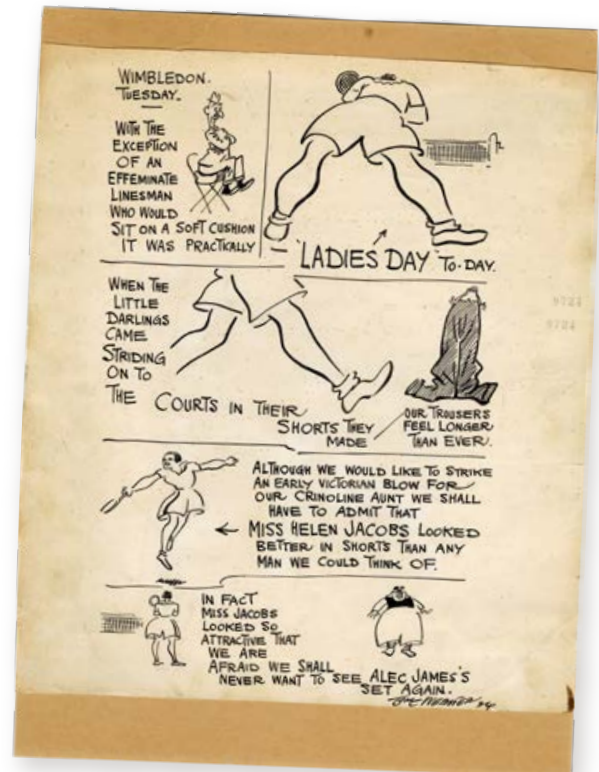 WIMBLEDON.
TUESDAY.
WITH THE
EXCEPTION
OF AN
EFFEMINATE
LINESMAN
WHO WOULD
SIT ON A SOFT CUSHION
IT WAS PRACTICALLY
'LADIES DAY' TO-DAY.
WHEN THE
LITTLE
DARLINGS
CAME
STRIDING
ON TO
THE COURTS IN THEIR
SHORTS THEY
MADE
OUR TROUSERS
FEEL LONGER
THAN EVER.
ALTHOUGH WE WOULD LIKE TO STRIKE
AN EARLY VICTORIAN BLOW FOR
OUR CRINOLINE AUNT WE SHALL
HAVE TO ADMIT THAT
MISS HELEN JACOBS LOOKED
BETTER IN SHORTS THAN ANY
MAN WE COULD THINK OF.
IN FACT
MISS JACOBS
LOOKED SO
ATTRACTIVE THAT
WE ARE
AFRAID WE SHALL
NEVER WANT TO SEE ALEC JAMES'S
SET AGAIN.